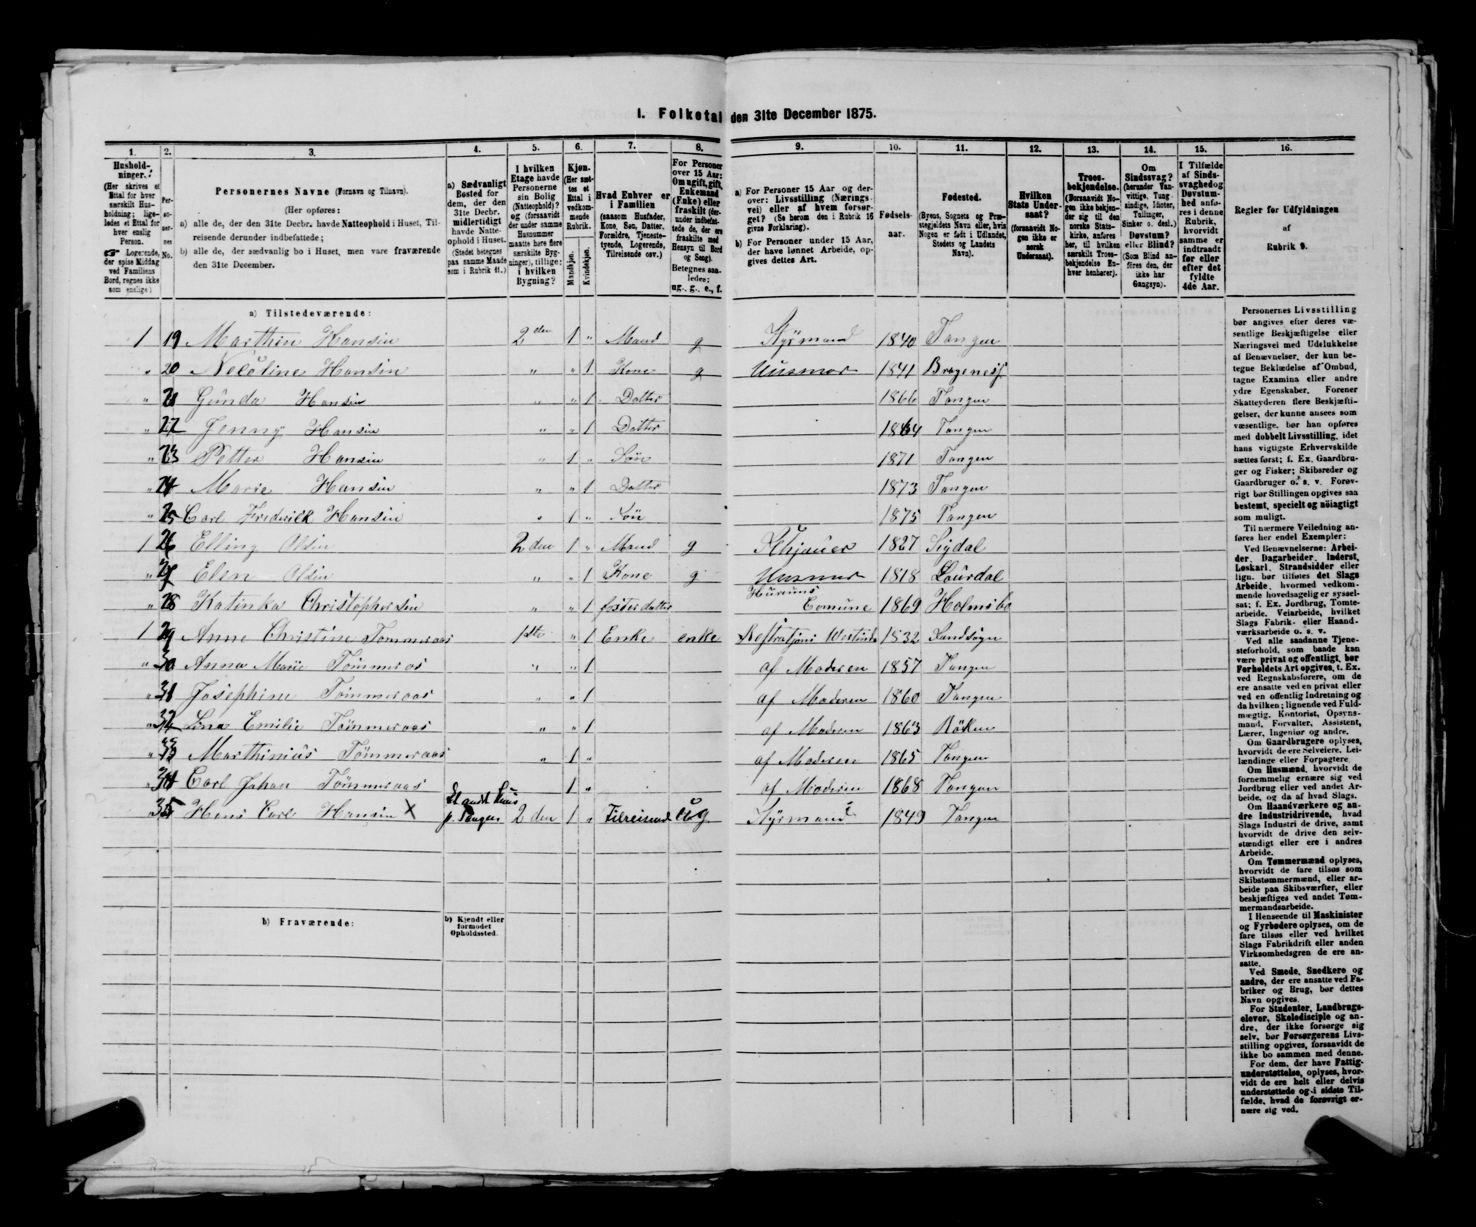 1. Folketal den 31te December 1875.
1. 2. 3. 4. 5. 6. 7. 8. 9. 10. 11. 12. 13. 14. 15. 16.
Hushold-
ninger.
(Her skrives et
Ettal for hver
særskilt Hus-
holdning; lige-
ledes et Ettal for
hver enslig
Person.
☞ Logerende,
der spise Middag
ved Familiens
Bord, regnes ikke
som enslige)
Per-
so-
ner-
nes
No.
Personernes Navne (Fornavn og Tilnavn).
(Her opføres:
a) alle de, der den 31te Decbr. havde Natteophold i Huset, Til-
reisende derunder indbefattede;
b) alle de, der sædvanlig bo i Huset, men vare fraværende
den 31te December.
a) Sædvanligt
Bosted for
dem, der den
31te Decbr.
midlertidigt
havde Natte-
ophold i Huset.
(Stedet betegnes
paa samme Maade
som i Rubrik 11.)
I hvilken
Etage havde
Personerne
sin Bolig
(Natteophold)?
og (forsaavidt
der under samme
Husnummer
maatte høre flere
særskilte Byg-
ninger), tillige:
i hvilken
Bygning?
Kjøn.
(Her sæt-
tes et
Ettal i
vedkom-
mende
Rubrik.
Mandkjøn.
Kvindekjøn.
Hvad Enhver er
i Familien
(saasom Husfader,
Kone, Søn, Datter,
Forældre, Tjeneste-
tyende, Logerende,
Tilreisende osv.)
For Personer
over 15 Aar:
Om ugift, gift,
Enkemand
(Enke) eller
fraskilt (der-
under indbefat-
tede de, der ere
fraskilte med
Hensyn til Bord
og Seng).
Betegnes saa-
ledes:
ug., g., e., f.
a) For Personer 15 Aar og der-
over: Livsstilling (Nærings-
vei) eller af hvem forsør-
get? (Se herom den i Rubrik 16
givne Forklaring).
b) For Personer under 15 Aar,
der have lønnet Arbeide, op-
gives dettes Art.
Fødsels-
aar.
Fødested.
(Byens, Sognets og Præ-
stegjeldets Navn eller, hvis
Nogen er født i Udlandet,
Stedets og Landets
Navn).
Hvilken
Stats Under-
saat?
(forsaavidt No-
gen ikke er
norsk
Undersaat).
Troes-
bekjendelse.
(Forsaavidt No-
gen ikke bekjen-
der sig til den
norske Stats-
kirke, anføres
her, til hvilken
særskilt Troes-
bekjendelse En-
hver henhører).
Om
Sindssvag?
(herunder Van-
vittige, Tung-
sindige, Idioter,
Tullinger,
Sinker o. desl.)
Døvstum?
eller Blind?
(Som Blind an-
føres den, der
ikke har
Gangsyn).
I Tilfælde
af Sinds-
svaghed og
Døvstum-
hed anfø-
res i denne
Rubrik,
hvorvidt
samme er
indtraadt
før eller
efter det
fyldte
4de Aar.
Regler for Udfyldningen
af
Rubrik 9.
a) Tilstedeværende:
1 19 Marthin Hansin 2 den 1 „ Mand g Styrmand 1840 Tangen
„ 20 Nicoline Hansin „ „ 1 Kone g Husmor 1841 Bragenesf
„ 21 Gunda Hansin „ „ 1 Datter 1866 Tangen
„ 22 Jenny Hansin „ 1 Datter 1864 Tangen
„ 23 Petter Hansin „ 1 „ Søn 1871 Tangen
„ 24 Marie Hansin „ „ 1 Datter 1873 Tangen
„ 25 Carl Fredrik Hansin „ 1 „ Søn 1875 Tangen
1 26 Elling Olsin 2 den 1 „ Mand g 1827 Sigdal
„ 27 Elen Olsin „ „ 1 Kone g Husmor 1818 Laurdal
„ 28 Katinka Christophersin „ „ 1 datter Hurums Comune 1869 Holmsbo
1 29 Anne Christine Tømmeraas 1ste „ 1 Enke enke 1832 Sandsogn
„ 30 Anna Marie Tømmeraas „ „ 1 af Moderen 1857 Tangen
„ 31 Josephine Tømmeraas „ „ 1 af Moderen 1860 Tangen
„ 32 Lina Emilie Tømmeraas „ „ 1 af Moderen 1863 Röken
„ 33 Marthinius Tømmeraas „ 1 „ af Moderen 1865 Tangen
„ 34 Carl Johan Tømmeraas 1 „ af Moderen 1868 Tangen
„ 35 Hans Carl Hansin X Et andt Huus p. Tangen 2 den 1 „ Tilreisend ug Styrmand 1849 Tangen
b) Fraværende:
b) Kjendt eller
formodet
Opholdssted.
Personernes Livsstilling
bør angives efter deres væ-
sentlige Beskjæftigelse eller
Næringsvei med Udelukkelse
af Benævnelser, der kun be-
tegne Beklædelse af Ombud,
tagne Examina eller andre
ydre Egenskaber. Forener
Skatteyderen flere Beskjæfti-
gelser, der kunne ansees som
væsentlige, bør han opføres
med dobbelt Livsstilling, idet
hans vigtigste Erhvervskilde
sættes først; f. Ex. Gaardbru-
ger og Fisker; Skibsreder og
Gaardbruger o. s. v. Forøv-
rigt bør Stillingen opgives saa
bestemt, specielt og nøiagtigt
som muligt.
Til nærmere Veiledning an-
føres her endel Exempler:
Ved Benævnelserne: Arbei-
der, Dagarbeider, Inderst,
Løskarl, Strandsidder eller
lign. bør tilføies det Slags
Arbeide, hvormed vedkom-
mende hovedsagelig er syssel-
sat; f. Ex. Jordbrug, Tomte-
arbeide, Veiarbeide, hvilket
Slags Fabrik- eller Haand-
værksarbeide o. s. v.
Ved alle saadanne Tjene-
steforhold, som baade kan
være privat og offentligt, bør
Forholdets Art opgives, t. Ex.
ved Regnskabsførere, om de
ere ansatte ved en privat eller
ved en offentlig Indretning og
da hvilken; lignende ved Fuld-
mægtig, Kontorist, Opsyns-
mand, Forvalter, Assistent,
Lærer, Ingeniør og andre.
Om Gaardbrugere oplyses,
hvorvidt de ere Selveiere, Lei-
lændinge eller Forpagtere.
Om Husmænd, hvorvidt de
fornemmelig ernære sig ved
Jordbrug eller ved andet Ar-
beide, og da af hvad Slags.
Om Haandværkere og an-
dre Industridrivende, hvad
Slags Industri de drive, samt
hvorvidt de drive den selv-
stændigt eller ere i andres
Arbeide.
Om Tømmermænd oplyses,
hvorvidt de fare tilsøs som
Skibstømmermænd, eller ar-
beide paa Skibsværfter, eller
beskjæftiges ved andet Tøm-
mermandsarbeide.
I Henseende til Maskinister
og Fyrbødere oplyses, om de
fare tilsøs eller ved hvilket
Slags Fabrikdrift eller anden
Virksomhedsgren de ere an-
satte.
Ved Smede, Snedkere og
andre, der ere ansatte ved Fa-
briker og Brug, bør dettes
Navn opgives.
For Studenter, Landbrugs-
elever, Skoledisciple og an-
dre, der ikke forsørge sig
selv, bør Forsørgerens Livs-
stilling opgives, forsaavidt de
ikke bo sammen med denne.
For dem, der have Fattig-
understøttelse, oplyses, hvor-
vidt de ere helt eller delvis
understøttede og i sidste Til-
fælde, hvad de forøvrigt er-
nære sig ved.